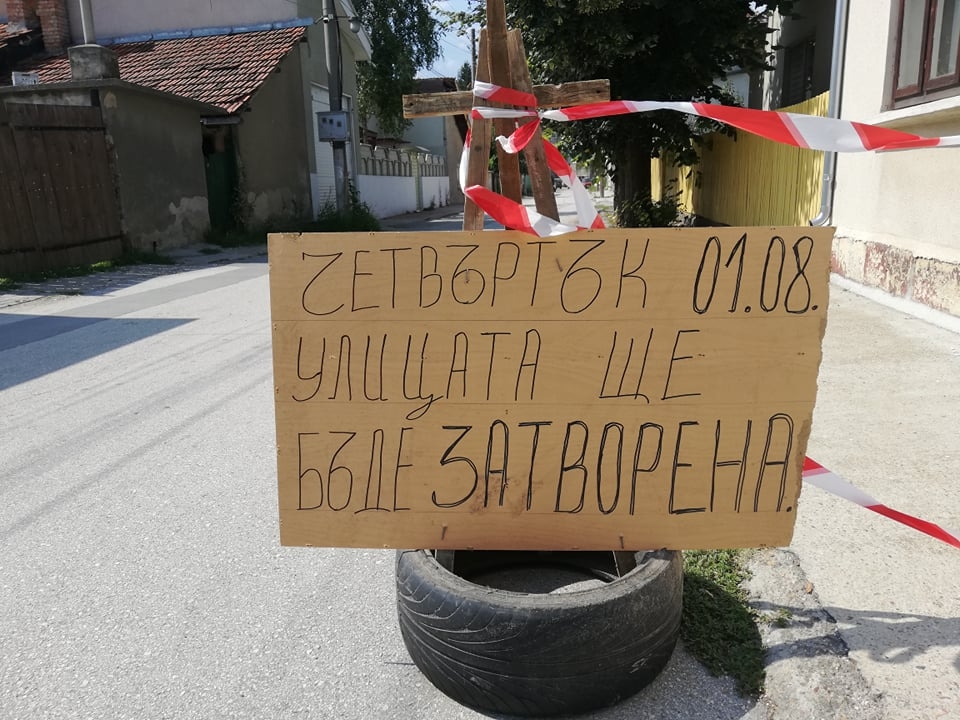 ЧЕТВЪРТЪК 01.08.
УЛИЦАТА ЩЕ
БЪДЕ ЗАТВОРЕНА.